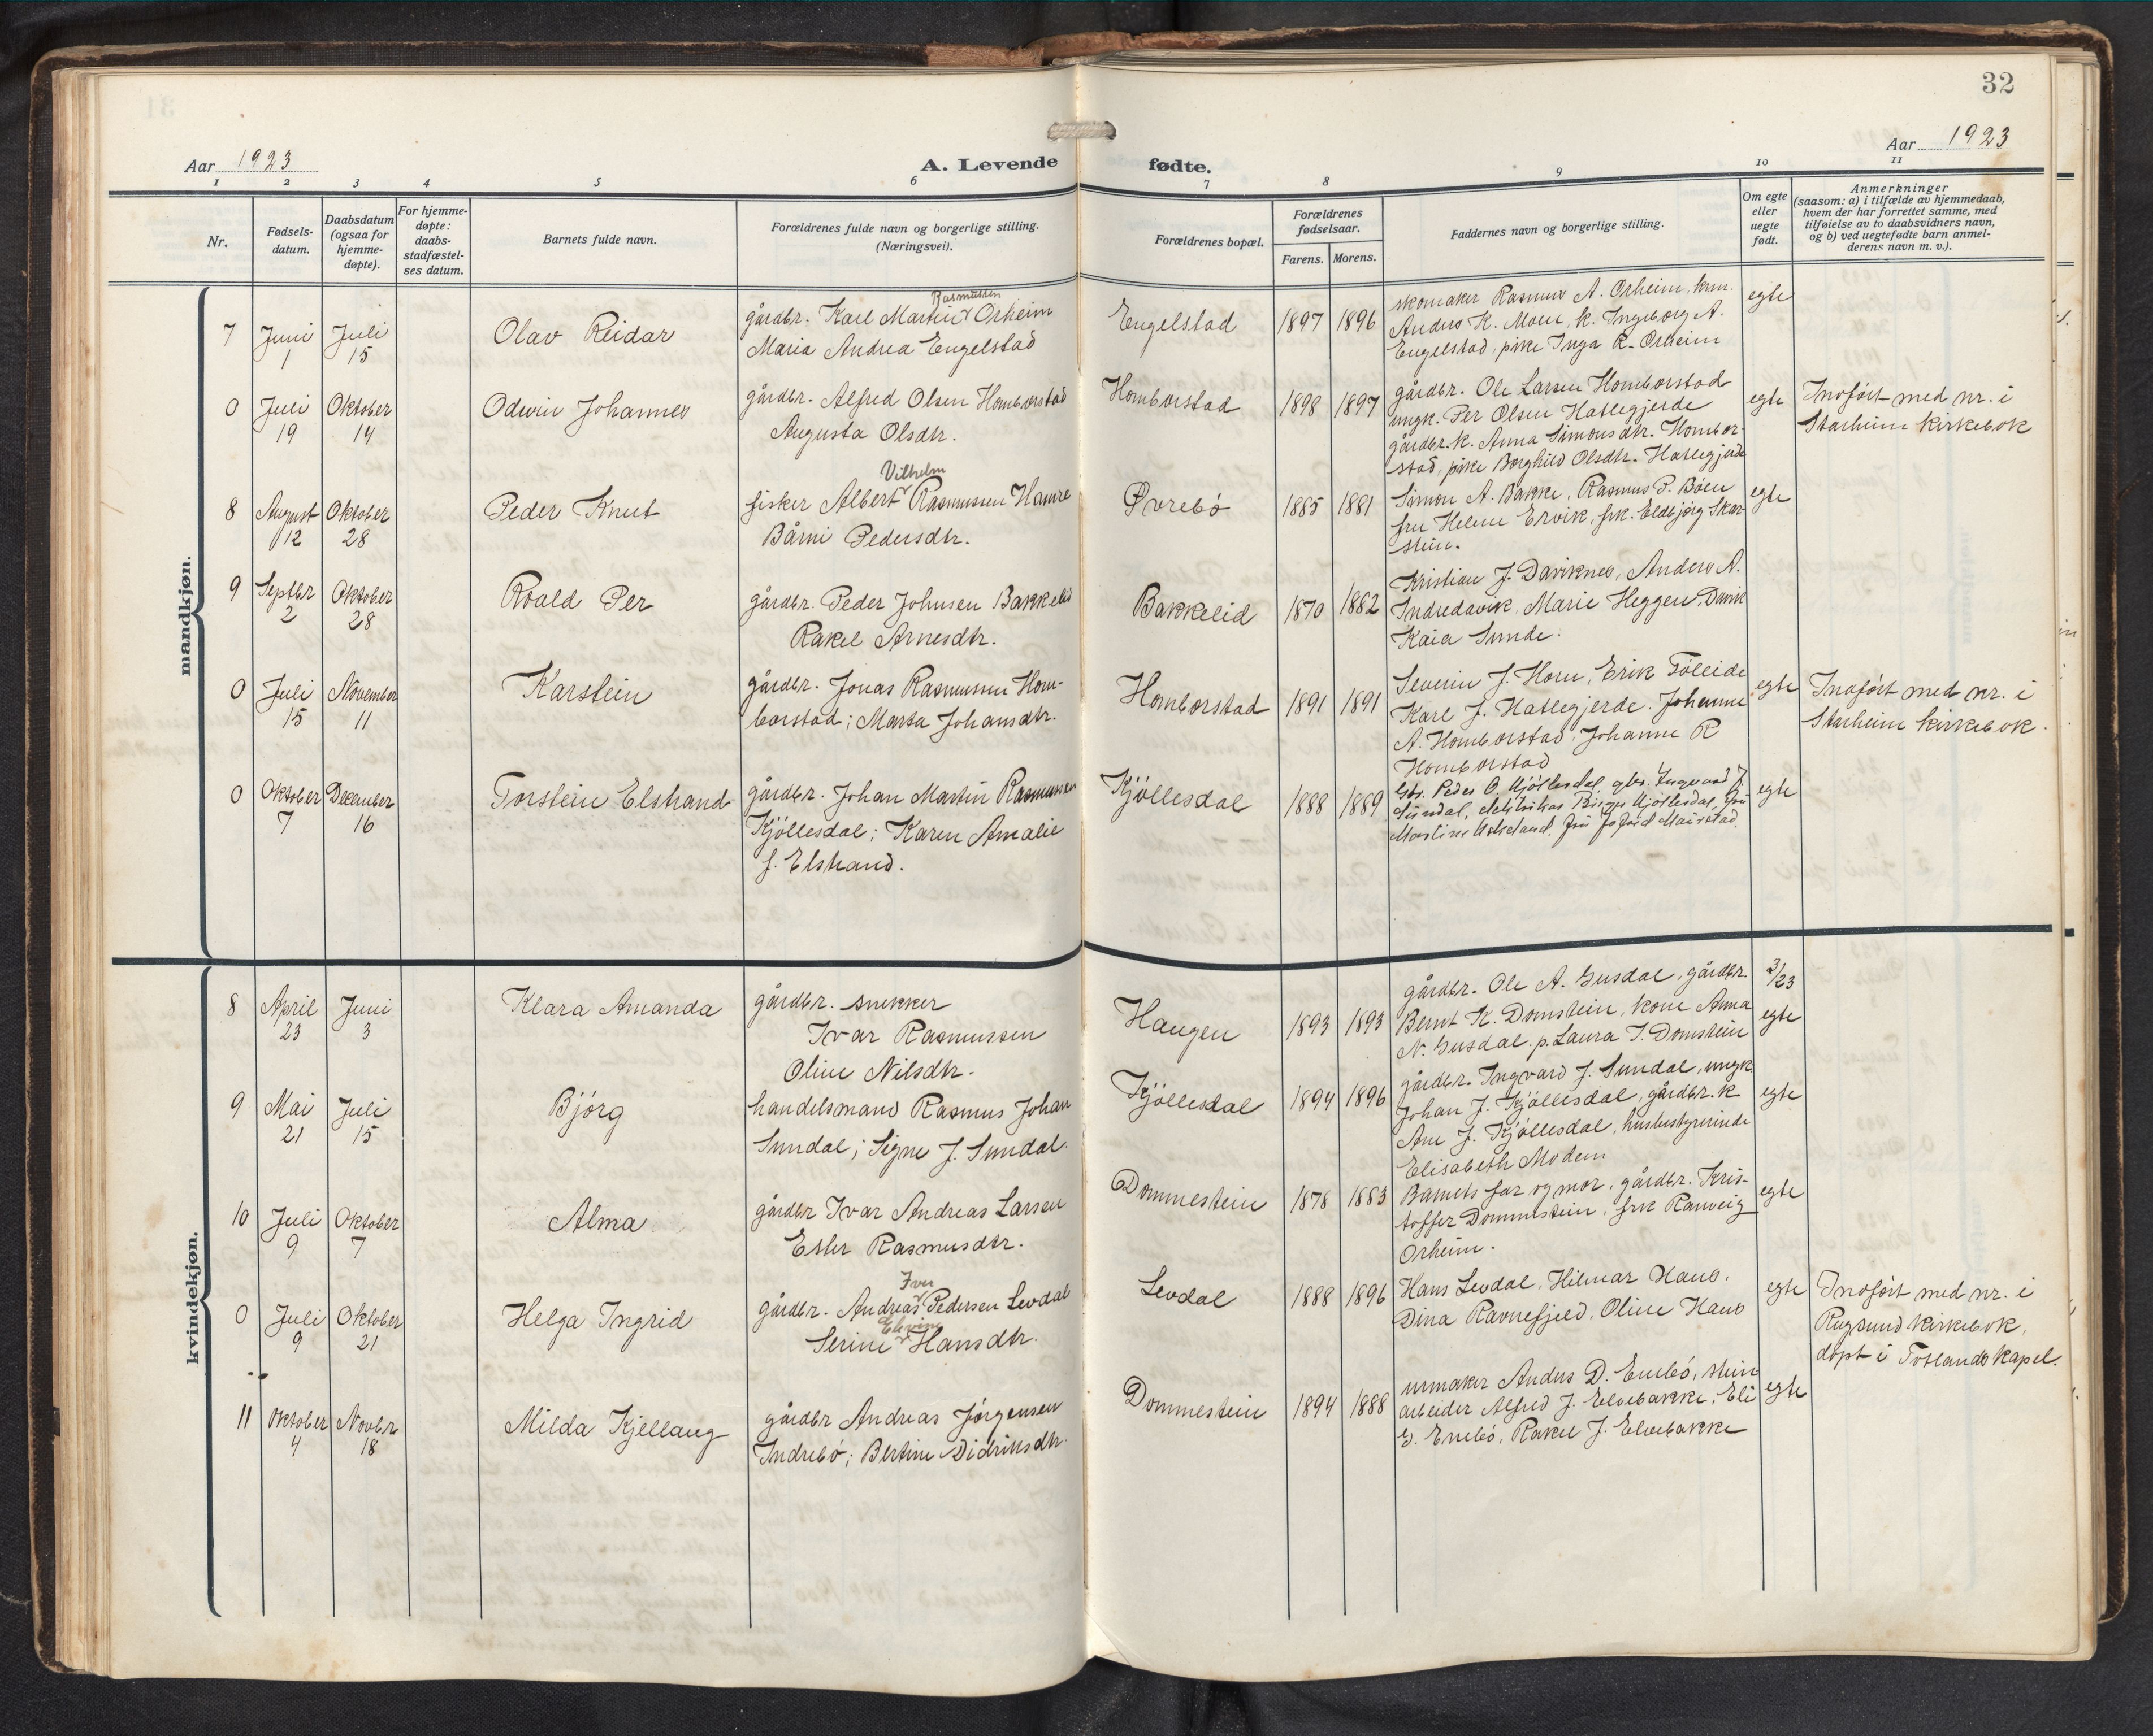 32
Aar 1923
A. Levende
fødte.
Aar 1923
1 2 3 4 5 6 7 8 9 10 11
Nr.
Fødsels-
datum.
Daabsdatum
(ogsaa for
hjemme-
døpte).
For hjemme-
døpte:
daabs-
stadfæstel-
ses datum.
Barnets fulde navn.
Forældrenes fulde navn og borgerlige stilling.
(Næringsvei).
Forældrenes bopæl.
Forældrenes
fødselsaar.
Farens. Morens.
Faddernes navn og borgerlige stilling.
Om egte
eller
uegte
født.
Anmerkninger
(saasom: a) i tilfælde av hjemmedaab,
hvem der har forrettet samme, med
tilføielse av to daabsvidners navn,
og b) ved uegtefødte barn anmel-
derens navn m. v.).
mandkjøn.
7 Juni 1 Juli 15
Olav Reidar
Rasmussen
gårdbr. Karl Martin Orheim
Maria Andrea Engelstad
Engelstad 1897 1896
skomaker Rasmus A. Orheim, krm.
Anders K. Moen, k. Ingeborg A.
Engelstad, pike Inga R. Orheim
egte
0 Juli 19 Oktober 14
Odwin Johannes
gårdbr. Alfred Olsen Homborstad
Augusta Olsdtr.
Homborstad 1898 1897
gårdbr. Ole Larsen Homborstad
ungk. Per Olsen Hatlegjerde
gårdbr. k. Anna Simonsdtr. Hombor-
stad, pike Borghild Olsdtr. Hatlegjerde
egte
Indført med nr. i
Starheim kirkebok
8 August 12 Oktober 28
Peder Knut
Vilhelm
fisker Albert Rasmussen Hamre
Bårni Pedersdtr.
Øvrebø 1885 1881
Simon A. Bakke, Rasmus P. Böen
fru Helene Ervik, frk. Eldbjørg Skar-
stein.
egte
9 Septbr 2 Oktober 28
Roald Per
gårdbr. Peder Johnsen Bakkelid
Rakel Arnesdtr.
Bakkelid 1870 1882
Kristian J. Daviknes, Anders A.
Indredavik, Marie Heggen, Davik
Kaia Sunde.
0 Juli 15 November 11
Karstein
gårdbr. Jonas Rasmussen Hom-
borstad; Marta Johansdtr.
Homborstad 1891 1891
Severin J. Horn, Erik Tölleide
Karl J. Hatlegjerde. Johanne
A. Homborstad, Johanne R
Homborstad
egte
Indført med nr. i
Starheim kirkebok.
0 Oktober 7 December 16
Torstein Elstrand
gårdbr. Johan Martin Rasmussen
Kjöllesdal; Karen Amalie
f. Elstrand.
Kjöllesdal 1888 1889
Gbr. Peder O. Kjöllesdal, gbr. Ingvard J.
Sundal, Birger Kjöllesdal, fru
Mairstad.
egte
kvindekjøn.
8 April 23 Juni 3
Klara Amanda
gårdbr. snekker
Ivar Rasmussen
Oline Nilsdtr.
Haugen 1893 1893
gårdbr. Ole A. Gusdal, gårdbr.
Bernt K. Domstein, kone Anna
N. Gusdal. p. Laura I. Domstein
3/23
egte
9 Mai 21 Juli 15
Bjørg
handelsmand Rasmus Johan
Sundal; Signe J. Sundal.
Kjöllesdal 1894 1896
gårdbr. Ingvard J. Sundal, ungk
Johan J. Kjöllesdal, gårdbr. k
Ane J. Kjöllesdal, husbestyrerinde
Elisabeth Modem
egte
10 Juli 9 Oktober 7
Alma
gårdbr Ivar Andreas Larsen
Ester Rasmusdtr.
Dommestein 1878 1883
Barnets far og mor, gårdbr. Kris-
toffer Dommestein, frk Ranveig
Orheim.
egte
0 Juli 9 Oktober 21
Helga Ingrid
Iver
gårdbr. Andreas Pedersen Levdal
Elevine
Serine Hansdtr.
Levdal 1888 1896
Hans Levdal, Hilmar Haus.
Dina Ravnefjeld, Oline Haus
egte
Indført med nr. i
Rugsund kirkebok,
døpt i Totlands kapel.
11 Oktober 4 Novbr 18
Milda Kjellaug
gårdbr Andreas Jørgensen
Indrebø; Bertine Didriksdtr.
Dommestein 1894 1888
urmaker Anders D. Enebø, stein
arbeider Alfred J. Elvebakke, Eli
D. Enebø, Rakel J. Elvebakke
egte